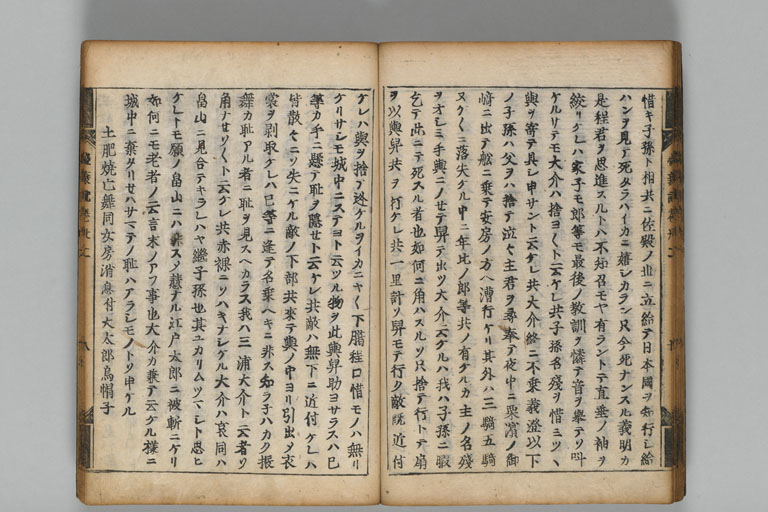 惜キ子孫ト相共ニ佐殿ノ世ニ立給テ日本國ヲ知行シ給
ハンヲ見テ死タラハイカニ嬉シカラン只今死ナンスル義明カ
是程君ヲ思進スルトハ不知召モヤ有ラントテ直垂ノ袖ヲ
絞リケレハ家子モ郎等モ最後ノ教訓ヲ憐テ音ヲ挙テソ叫
ケルサテモ大介ハ捨ヨ〱ト云ケレ共子孫名殘ヲ惜ミツヽ
輿ヲ寄テ具シ申サント云ケレ共大介終ニ不乗義澄以下
ノ子孫ハ父ヲハ捨テ泣々主君ヲ尋奉テ夜中ニ栗濱ノ御
﨑ニ出テ舩ニ乗テ安房ノ方ヘ漕行ケリ其外ハ三騎五騎
又ケ〱ニ落失ケル中ニ年比ノ郎等共ノ有ケルカ主ノ名殘
ヲオシミ手輿ニノセテ舁テ出ツ大介云ケルハ我ハ子孫ニ暇
乞テ此ニテ死スル者也如何ニ角ハスルソ只捨テ行トテ扇
ヲ以輿舁共ヲ打ケレ共一里計ソ舁モテ行ク敵既近付
ケレハ輿ヲ捨テ迯ケルヲイカニヤ〱下臈程口惜モノハ無リ
ケリサレモ城中ニステヨト云ツル物ヲ此輿舁助ヨサラスハ己
等カ手ニ懸テ耻ヲ隱セト云ケレ共敵ハ無下ニ近付ケレハ
皆散々ニソ失ニケル敵ノ下部共来テ輿ノ中ヨリ引出シ衣
裳ヲ剥取ケレハ己等ニ逢テ名乗ヘキニ非ス知ラ子ハカク振
舞カ耻アル者ニ耻ヲ見スヘカラス我ハ三浦大介ト云者ソ
角ナセソ〱ト云ケレ共赤裸ニソハキナシケル大介ハ哀同ハ
畠山ニ見合テキラレハヤ継子孫也其ユカリムツマシト思ヒ
ケレトモ願ノ畠山ニハ非スメ慥ナル江戸太郎ニ被斬ニケリ
如何ニモ老者ノ云言末ノアフ事也大介カ兼テ云ケル樣ニ
城中ニ棄タリセハサマテノ耻ハアラシモノトソ申ケル
土肥燒亡舞同女房消息付大太郎烏帽子